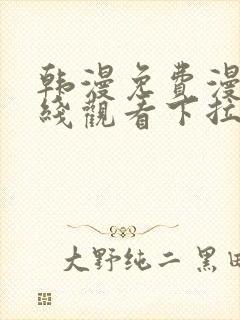 韩漫免費漫
綫觀看下拉
大野纯二 黑田